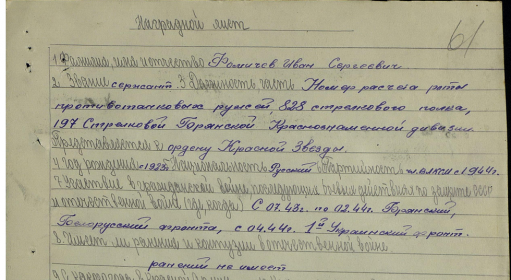 Наградной лист
61
1 Фамилия, имя и отчество Фомичев Иван Сергеевич
2. Звание сержант 3 Должность, часть Номер расчета роты
противотанковых ружей, 828 стрелкового полка,
197 Стрелковой Брянской Краснознаменной дивизии.
Представляется к ордену Красной Звезды.
4 год рождения 1923г. Национальность Русский Партийность чл. ВЛКСМ с 1944г.
7. Участие в гражданской войне, последующих боевых действиях по защите СССР
и отечественной войне (где, когда) С 07.43г. по 02.44г. Брянский,
Белорусский фронта, с 04.44г. 1й Украинский фронт.
8. Имеет ли ранения и контузии в отечественной войне
ранений не имеет